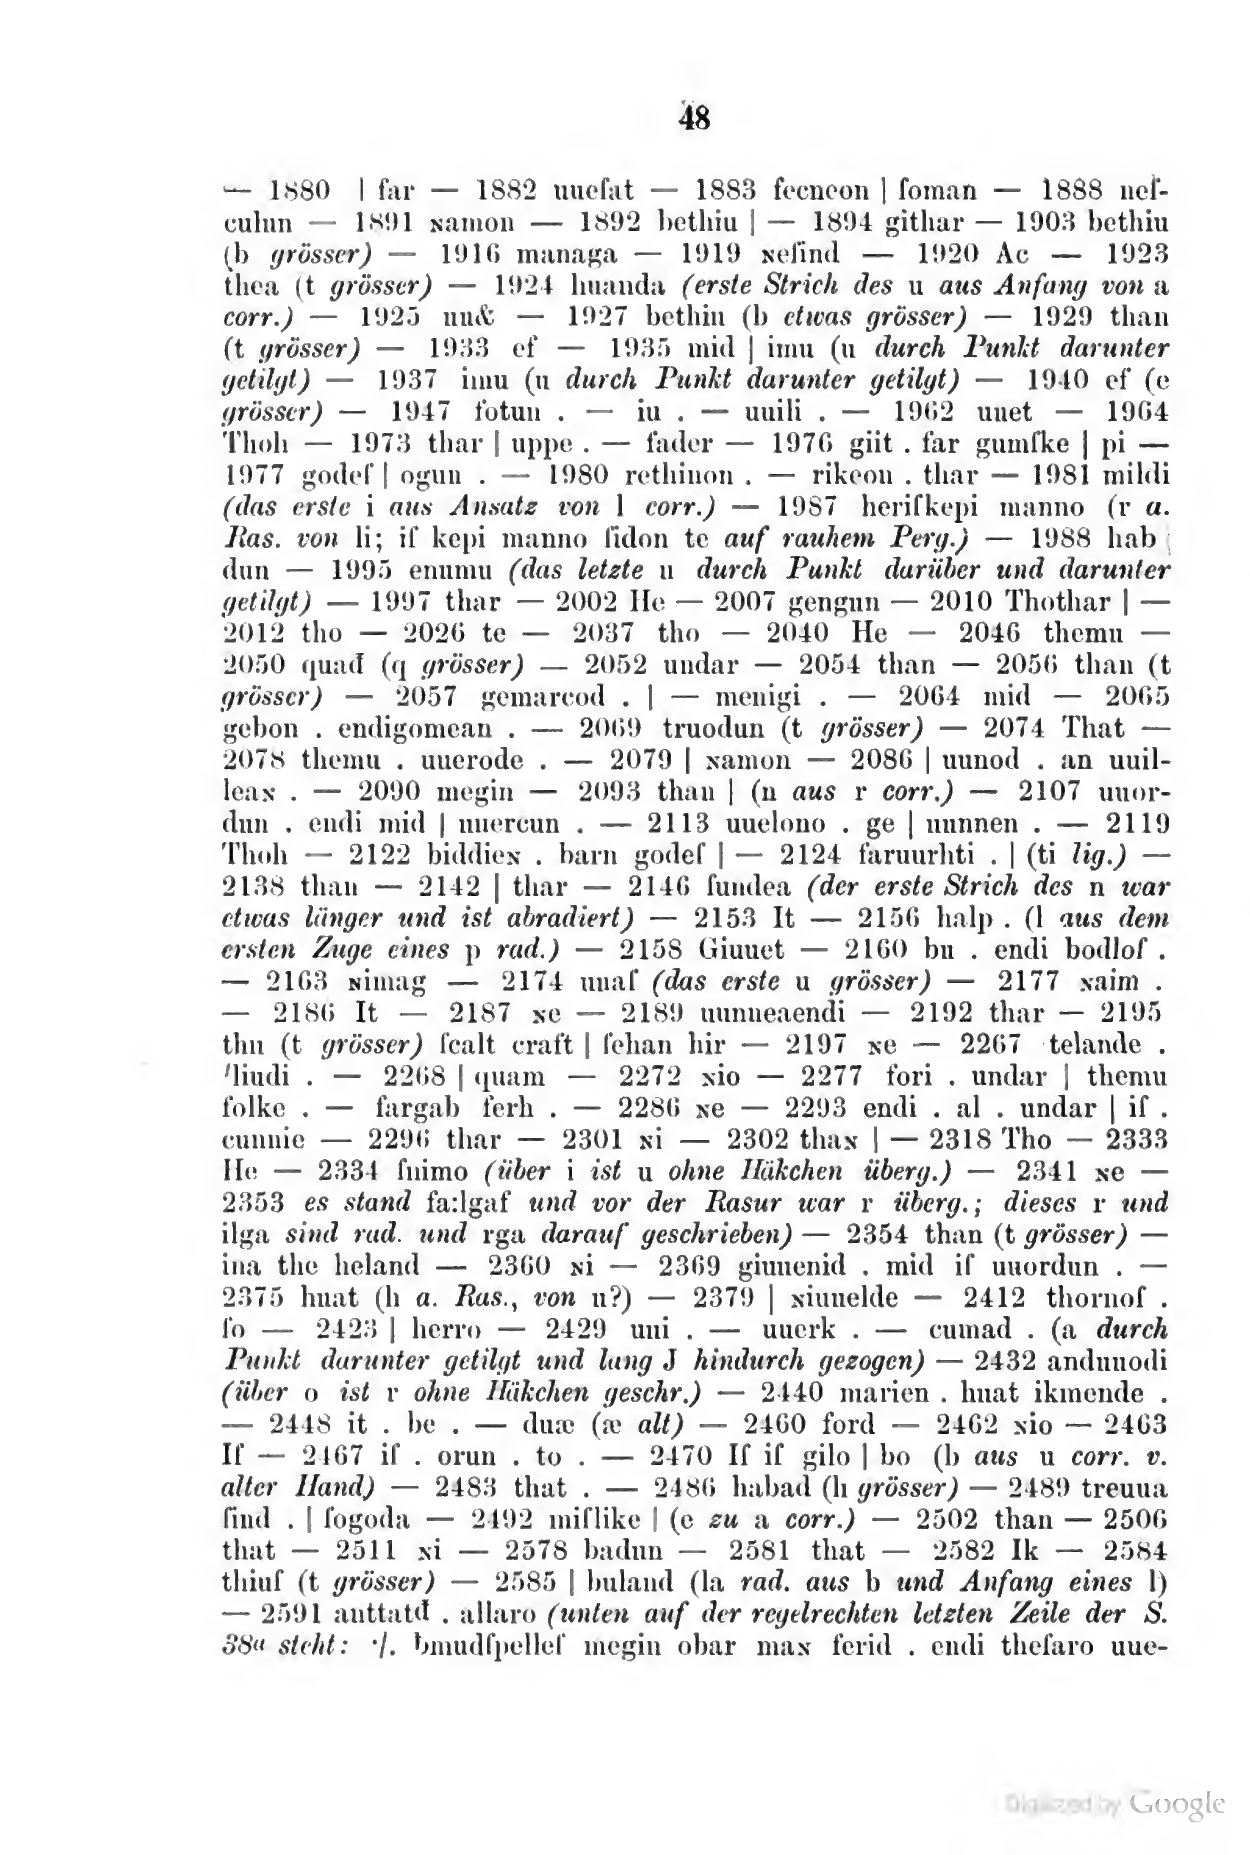 48
— 1880 | far — 1882 uueſat — 1883 fecneon | ſoman — 1888 neſ-
culun — 1891 ɴamon — 1892 bethiu | — 1894 githar — 1903 bethiu
(b grösser) — 1916 managa — 1919 ɴeſind — 1920 Ac — 1923
thea (t grösser) — 1924 huanda (erste Strich des u aus Anfang von a
corr.) — 1925 uu& — 1927 bethiu (b etwas grösser) — 1929 than
(t grösser) — 1933 ef — 1935 mid | imu (u durch Punkt darunter
getilgt) — 1937 imu (u durch Punkt darunter getilgt) — 1940 ef (e
grösser) — 1947 fotun . — iu . — uuili . — 1962 uuet — 1964
Thoh — 1973 thar | uppe . — fader — 1976 giit . far gumſke | pi —
1977 godeſ | ogun . — 1980 rethinon . — rikeon . thar — 1981 mildi
(das erste i aus Ansatz von l corr.) — 1987 heriſkepi manno (r a.
Ras. von li; iſ kepi manno ſidon te auf rauhem Perg.) — 1988 hab
dun — 1995 enumu (das letzte u durch Punkt darüber und darunter
getilgt) — 1997 thar — 2002 He — 2007 gengun — 2010 Thothar | —
2012 tho — 2026 te — 2037 tho — 2040 He — 2046 themu —
2050 quađ (q grösser) — 2052 undar — 2054 than — 2056 than (t
grösser) — 2057 gemarcod . | — menigi . — 2064 mid — 2065
gebon . endigomean . — 2069 truodun (t grösser) — 2074 That —
2078 themu . uuerode . — 2079 | ɴamon — 2086 | uunod . an uuil-
leaɴ . — 2090 megin — 2093 than | (n aus r corr.) — 2107 uuor-
dun . endi mid | uuercun . — 2113 uuelono . ge | uunnen . — 2119
Thoh — 2122 biddieɴ . barn godeſ | — 2124 faruurhti . | (ti lig.) —
2138 than — 2142 | thar — 2146 ſundea (der erste Strich des n war
etwas länger und ist abradiert) — 2153 It — 2156 halp . (l aus dem
ersten Zuge eines p rad.) — 2158 Giuuet — 2160 bu . endi bodloſ .
— 2163 ɴimag — 2174 uuaſ (das erste u grösser) — 2177 ɴaim .
— 2186 It — 2187 ɴe — 2189 uunneaendi — 2192 thar — 2195
thu (t grösser) ſcalt craft | ſehan hir — 2197 ɴe — 2267 telande .
'liudi . — 2268 | quam — 2272 ɴio — 2277 fori . undar | themu
folke . — fargab ferh . — 2286 ɴe — 2293 endi . al . undar | iſ .
cunnie — 2296 thar — 2301 ɴi — 2302 thaɴ | — 2318 Tho — 2333
He — 2334 ſuimo (über i ist u ohne Häkchen überg.) — 2341 ɴe —
2353 es stand fa:lgaf und vor der Rasur war r überg.; dieses r und
ilga sind rad. und rga darauf geschrieben) — 2354 than (t grösser) —
ina the heland — 2360 ɴi — 2369 giuuenid . mid iſ uuordun . —
2375 huat (h a. Ras., von u?) — 2379 | ɴiuuelde — 2412 thornoſ .
ſo — 2423 | herro — 2429 uui . — uuerk . — cumad . (a durch
Punkt darunter getilgt und lang J hindurch gezogen) — 2432 anduuodi
(über o ist r ohne Häkchen geschr.) — 2440 marien . huat ikmende .
— 2448 it . be . — duæ (æ alt) — 2460 ford — 2462 ɴio — 2463
Iſ — 2467 iſ . orun . to . — 2470 Iſ iſ gilo | bo (b aus u corr. v.
alter Hand) — 2483 that . — 2486 habad (h grösser) — 2489 treuua
ſind . | ſogoda — 2492 miſlike | (e zu a corr.) — 2502 than — 2506
that — 2511 ɴi — 2578 badun — 2581 that — 2582 Ik — 2584
thiuſ (t grösser) — 2585 | buland (la rad. aus b und Anfang eines l)
— 2591 anttatđ . allaro (unten auf der regelrechten letzten Zeile der S.
38a steht: ·/. bmudſpelleſ megin obar maɴ ferid . endi theſaro uue-
Digitized by Google